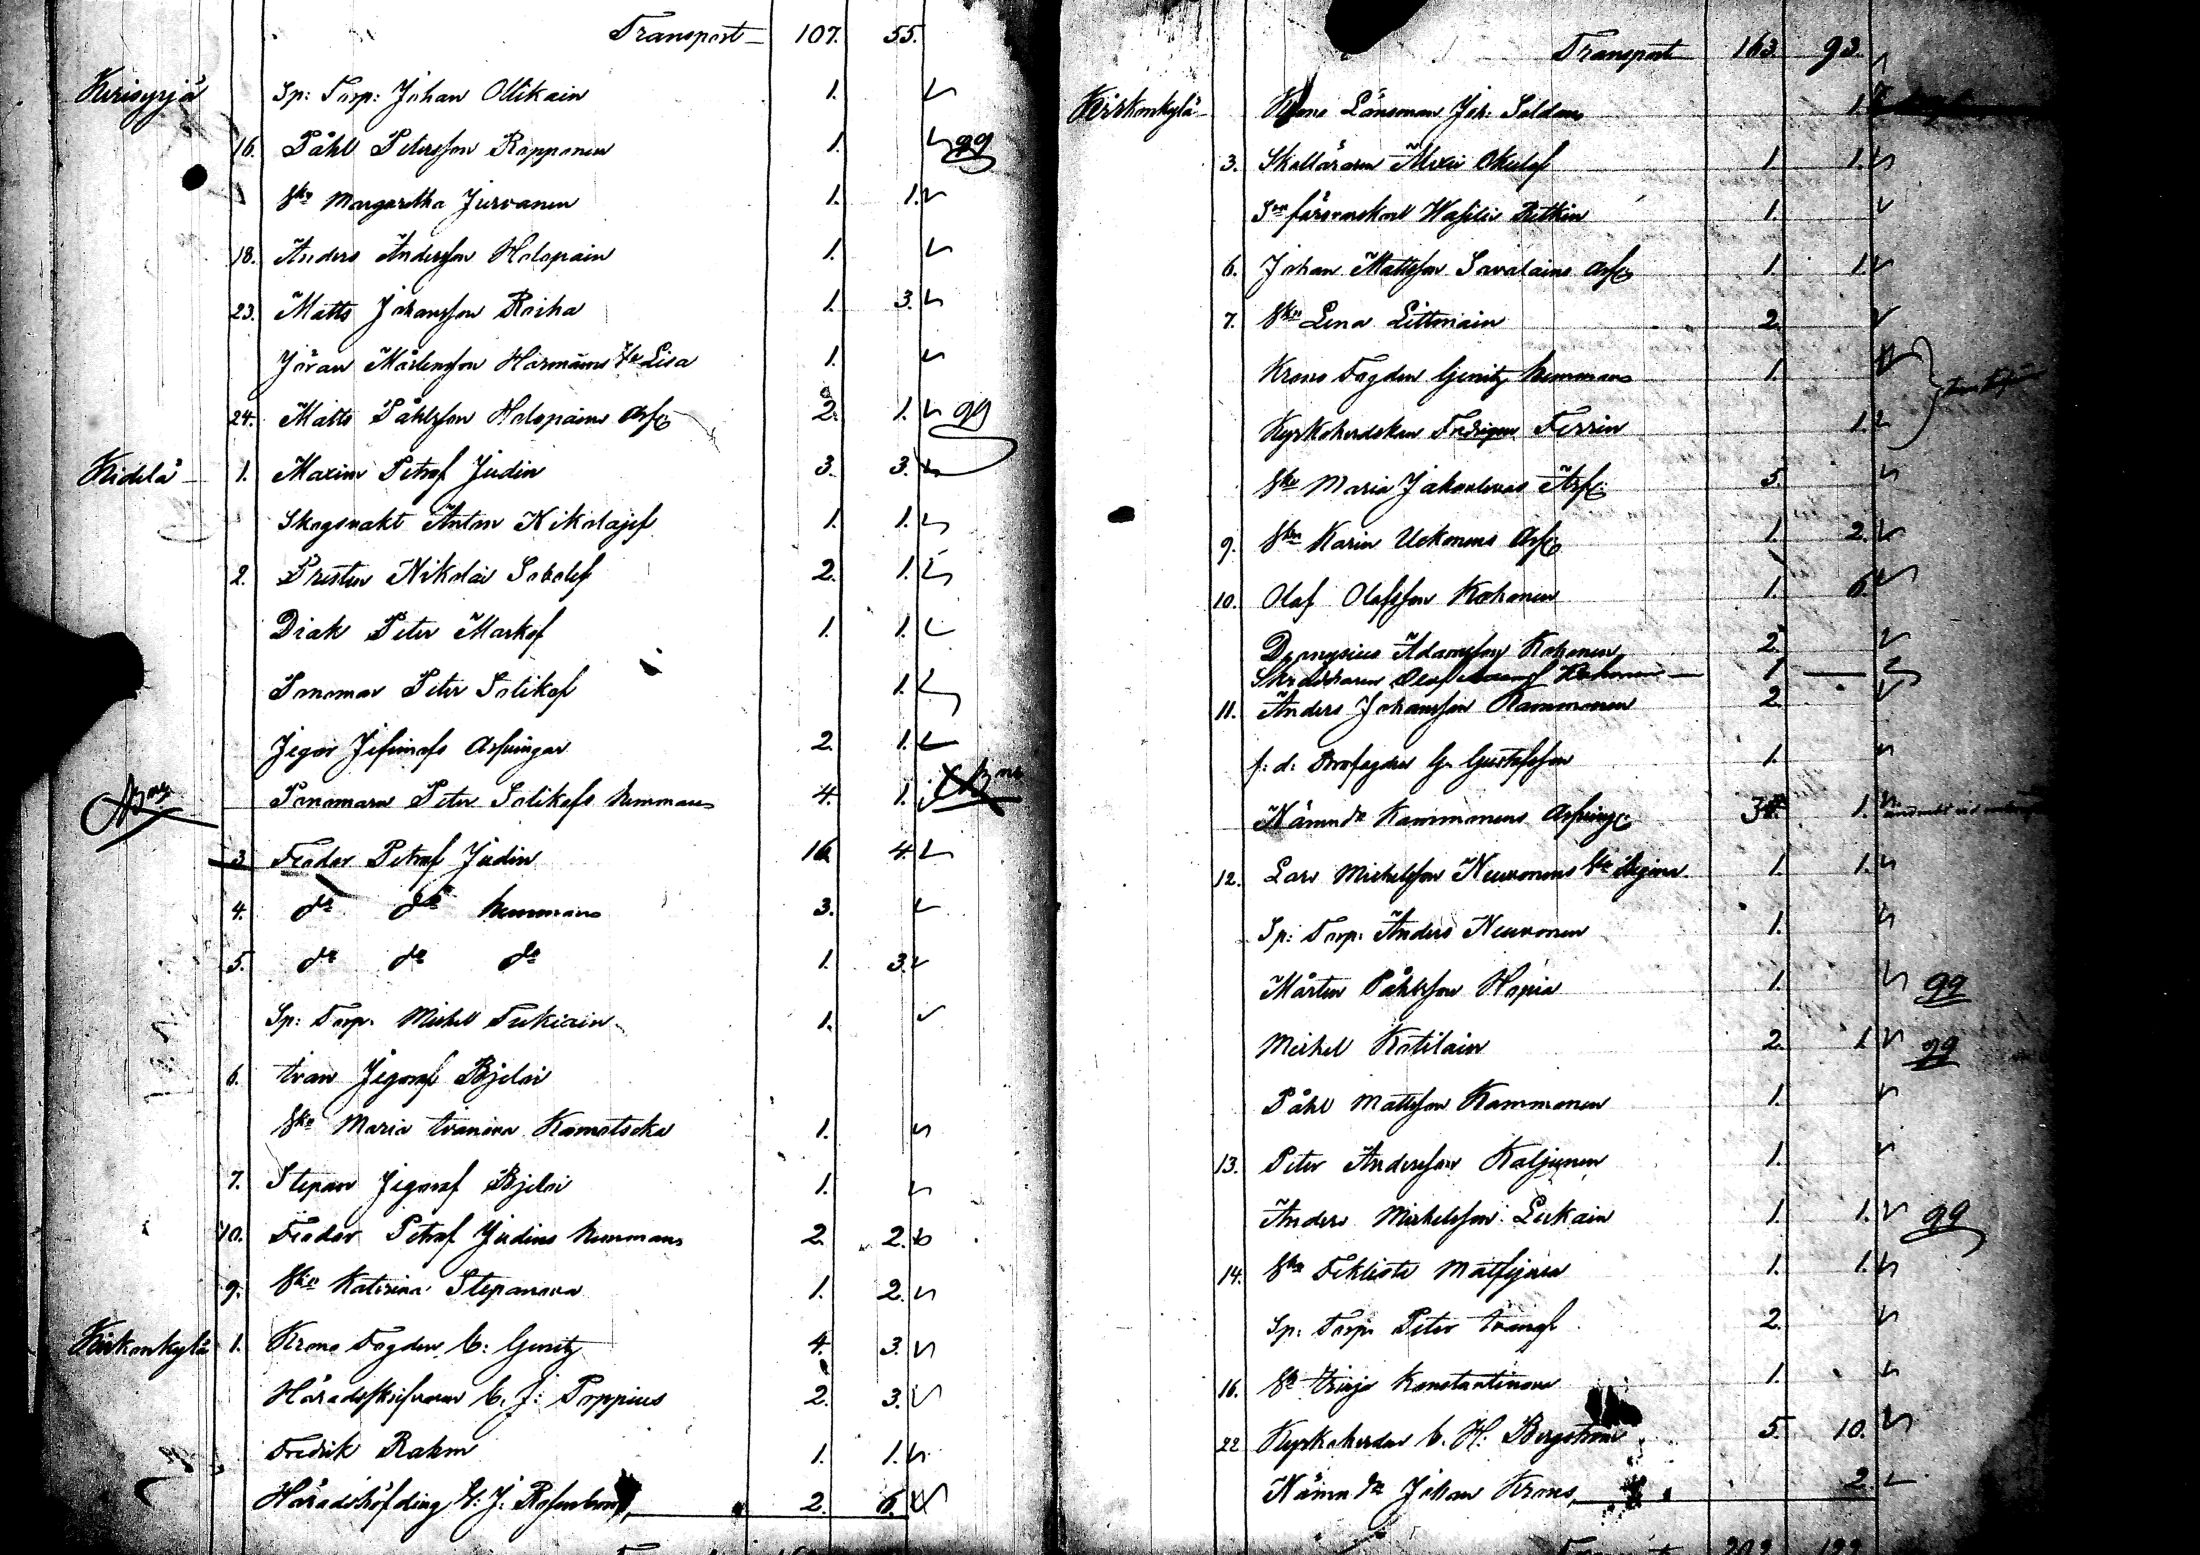 Transport 107. 55.
Kirisyrjä Sp: Torp: Johan Ollikain 1.
16. Påhl Petersson Ropponen 1. 99
Enk. Margaretha Jurvanen 1. 1.
18. Anders Andersson Holopain 1.
23. Matts Johansson Roiha 1. 3.
Jöran Mårtensson Lisa 1.
24. Matts Påhlsson Holopains Arf: 2. 1. 99
Kidelä 1. Maxim Petrof Judin 3. 3.
Skogsvakt Anton Nikolajef 1. 1.
2. Presten Nikolai Sobolef 2. 1.
Diak Peter Markof 1. 1.
Ponomar Peter Solikof 1.
Jegor Jefimofs Arfvingar 2. 1.
Ponomarn Peter Solikofs hemmans 4. 1.
3. Feodor Petrof Judin 16. 4.
4. do do hemmans 3.
5. do do do 1. 3.
Sp: Torp. Michel Tukiain 1.
6. Ivan Jegorof Bjeloi
Enk. Maria Ivanova Kamotscka 1.
7. Stepan Jegorof Bjeloi 1.
10. Feodor Petrof Judins hemmans 2. 2.
9. Enk. Katerina Stepanova 1. 2.
Kirkonkylä 1. Krono Fogden C: Genitz 4. 3.
Häradsskrifvaren C. J: Poppius 2. 3.
Fredrik Rahm 1. 1.
Häradshöfding J: 2. 6.
Transport 163. 93.
Kirkonkylä Krono Länsman Joh: Soldan 1.
3. Skolläraren Akulof 1. 1.
Wasilei Retkin 1.
6. Johan Mattsson Savolains Arf: 1. 1.
7. Enk. Lena Littmain 2.
Krono Fogden Genitz hemmans 1.
Kyrkoherdskan Ferrin 1.
Enk. Maria Jakovlevas Arf: 5.
9. Enk. Karin Uckonens Arf: 1. 2.
10. Olof Olofsson Kohonen 1. 6.
Dionysius Adamsson Kohonen 2.
Skräddaren Olof Kohonen 1
11. Anders Johansson Rammonen 2
f: d: Brofogden G. Gustafsson 1.
Nämnd: Kammonens Arfving: 3. 1.
12. Lars Michelsson Neuvonens Enk. Regina 1. 1.
Sp: Torp. Anders Neuvonen 1.
Mårten Påhlsson Hopia 1. 99
Michel Kotilain 2. 1. 99
Påhl Mattsson Kammonen 1.
13. Peter Andersson Kaljunen 1.
Anders Michelsson Lukain 1. 1. 99
14. Enk. Feklista Matfejeva 1. 1.
Sp: Torp. Peter Ivanof 2.
16. Konstantinova 1.
22 Kyrkoherden C. H: Bergström 5. 10.
Nämnd: Johan Krons 2.